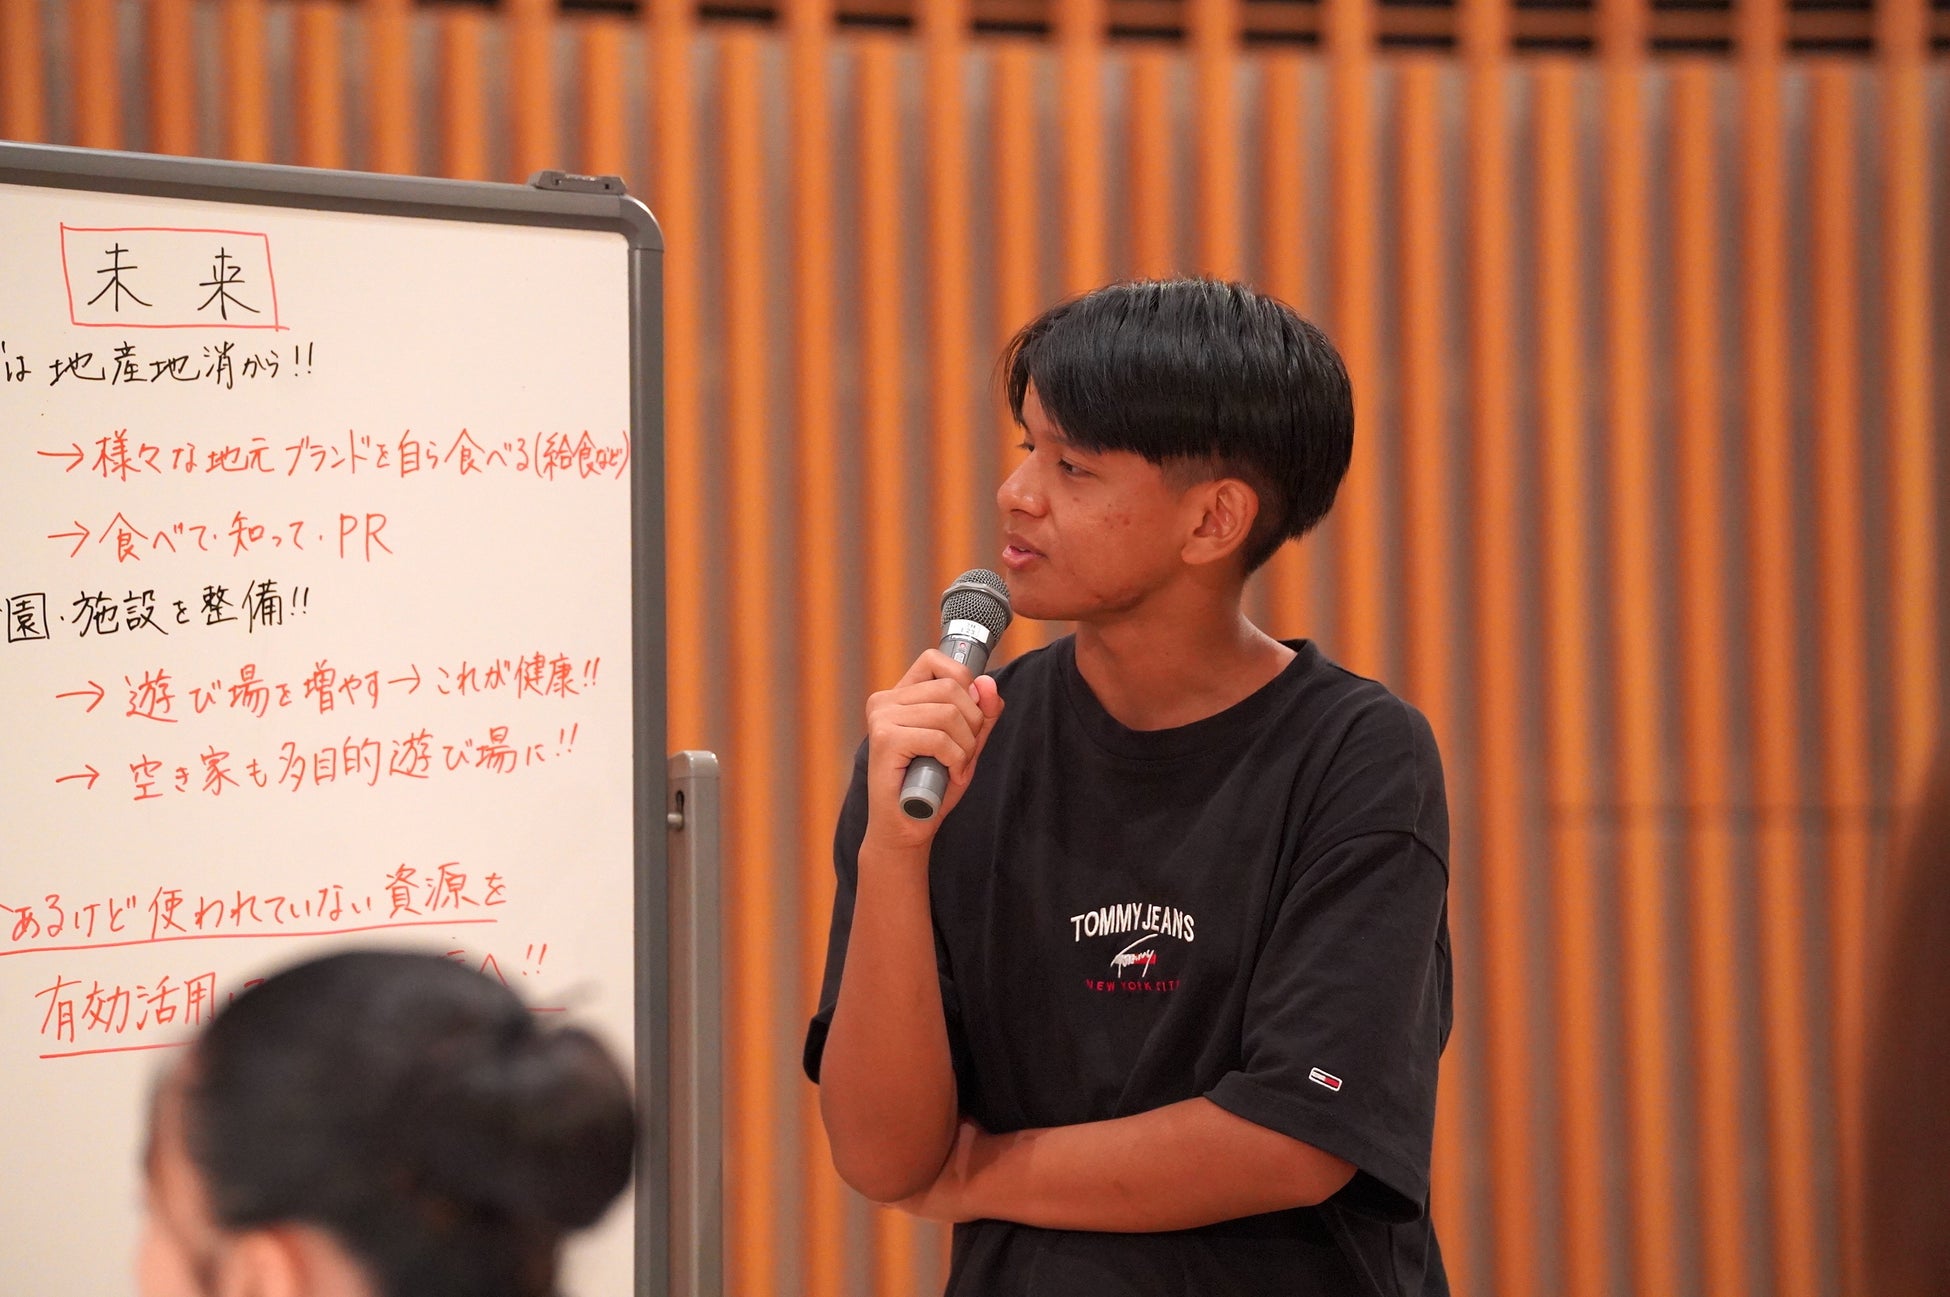 未来
は地産地消から!!
→様々な地元ブランドを自ら食べる(給食など)
→食べて・知って・PR
園・施設を整備!!
→遊び場を増やす→これが健康!!
→空き家も多目的遊び場に!!
あるけど使われていない資源を
有効活用
へ!!
TOMMY JEANS
Tommy
NEW YORK CITY